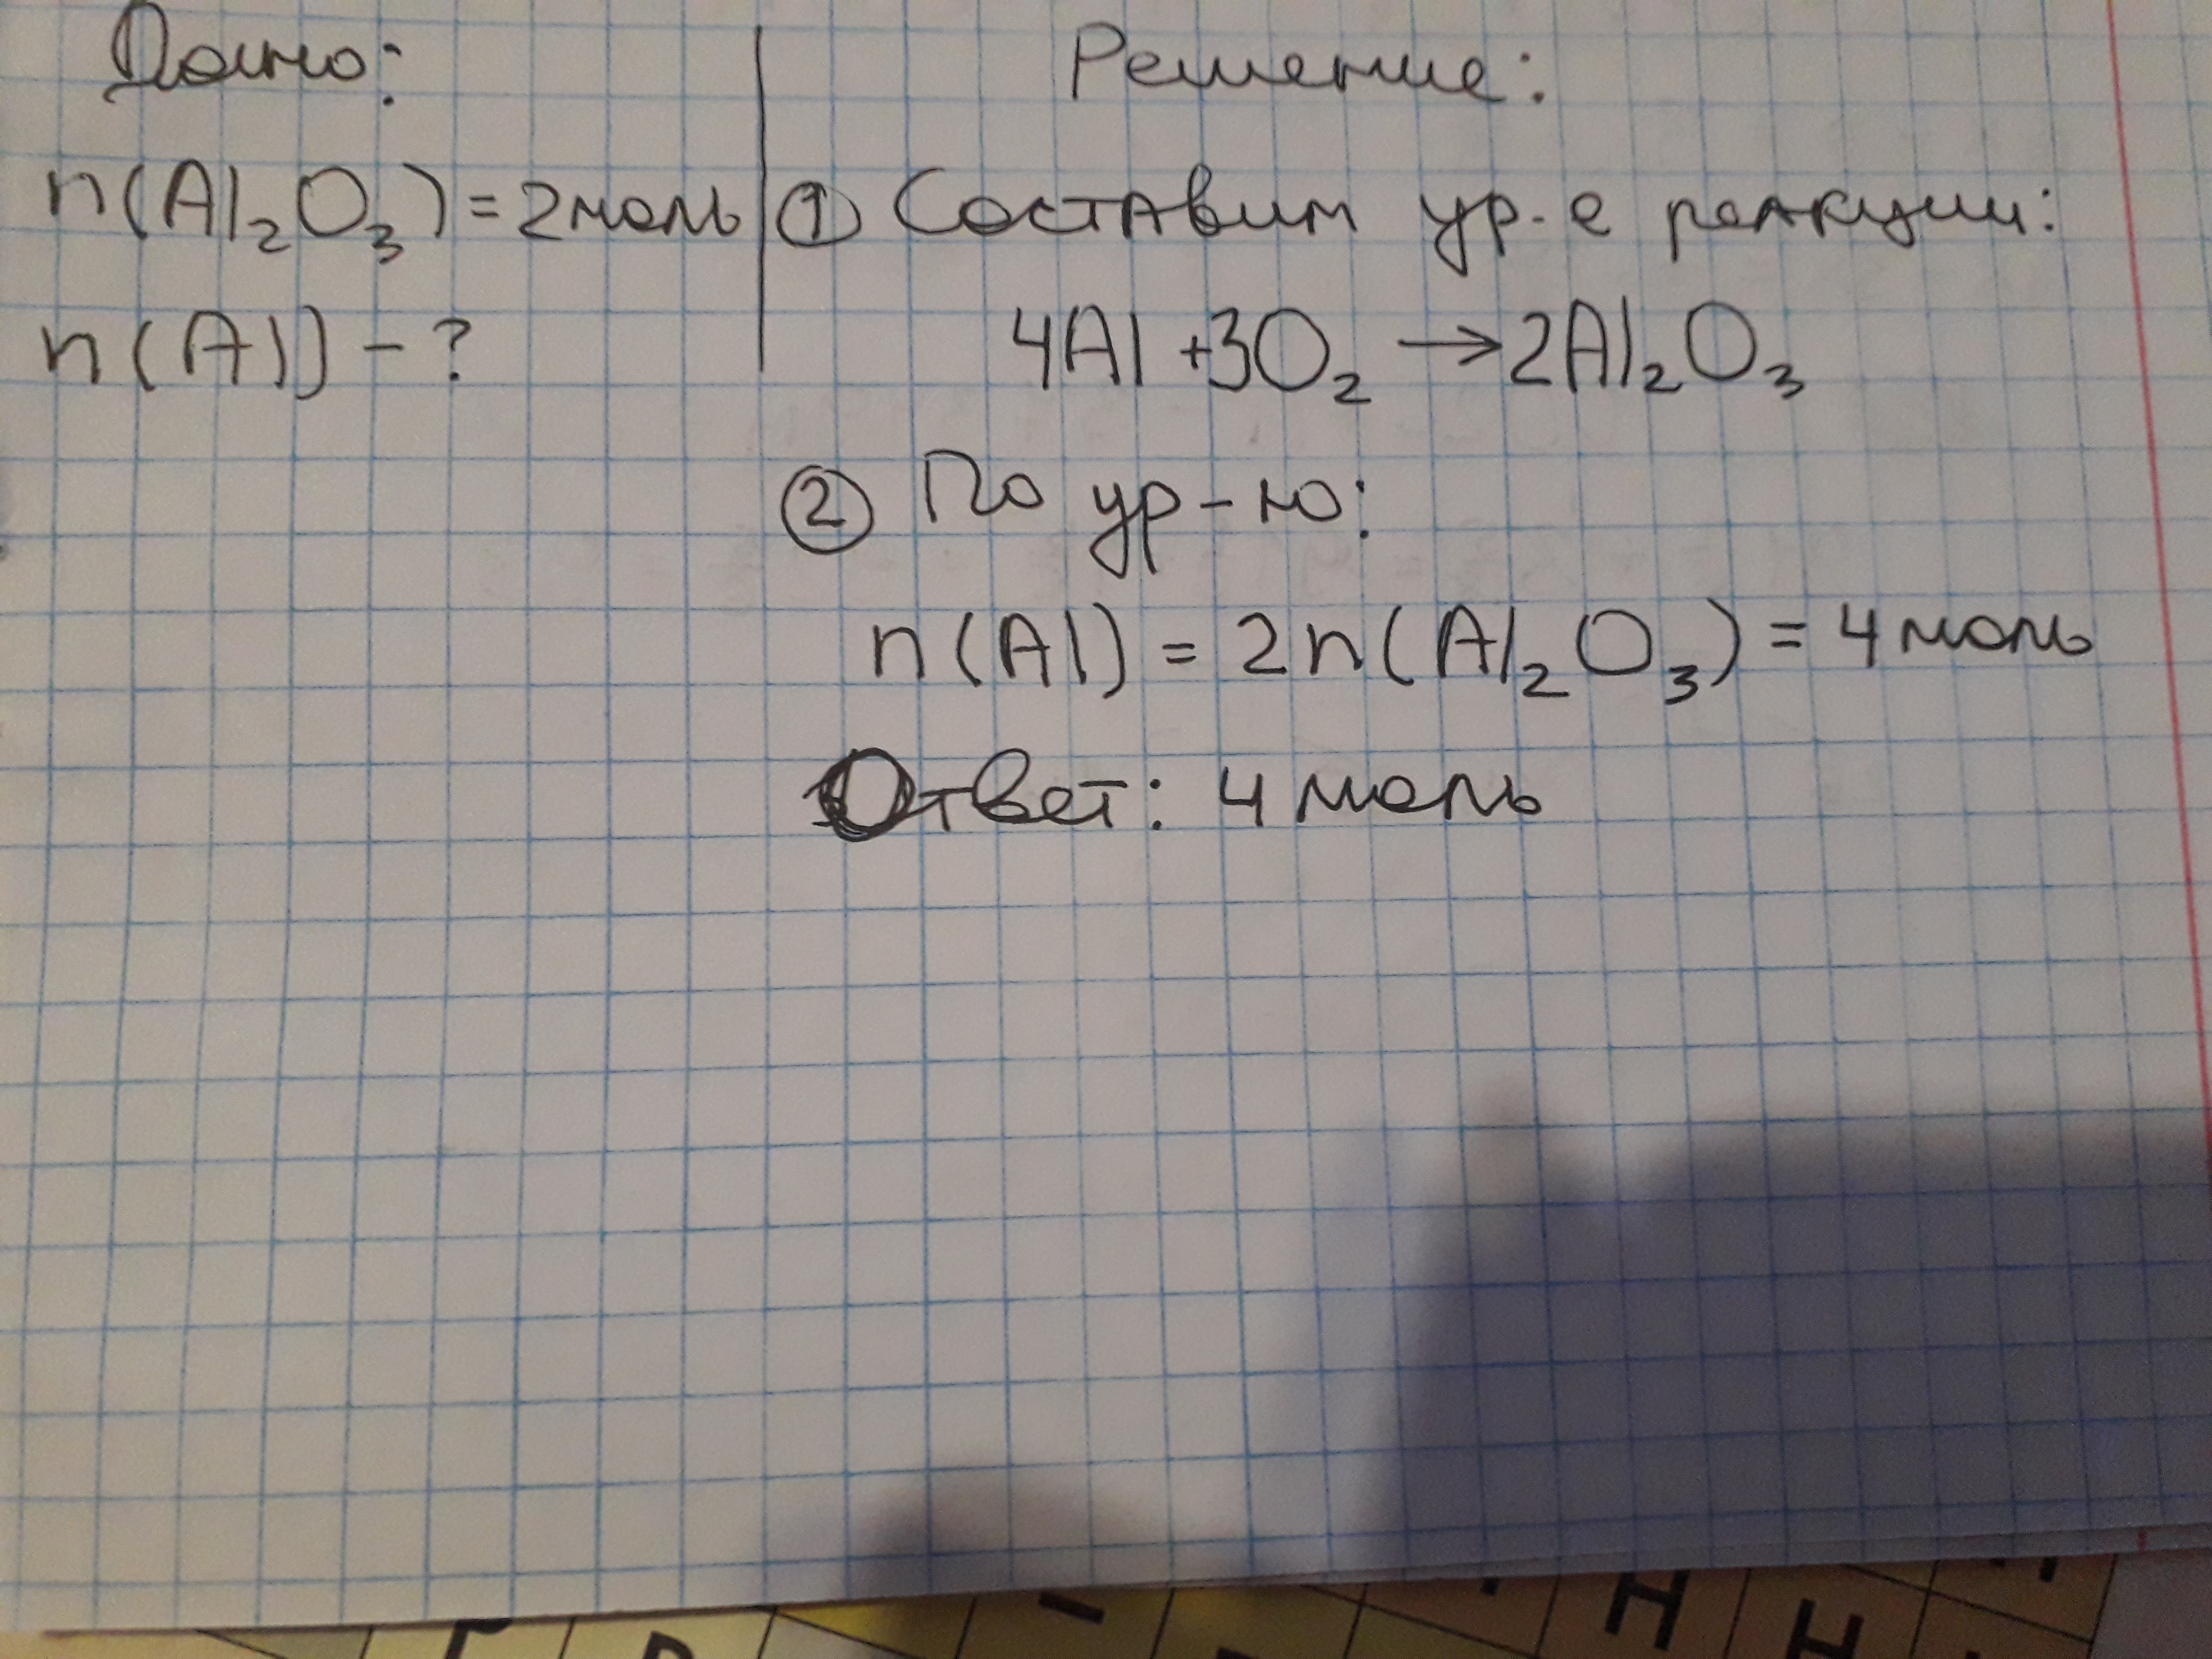 Дано:
n(Al₂O₃) = 2моль
n(Al) - ?
Решение:
① Составим ур-е реакции:
4Al + 3O₂ → 2Al₂O₃
② По ур-ю:
n(Al) = 2n(Al₂O₃) = 4 моль
Ответ: 4 моль